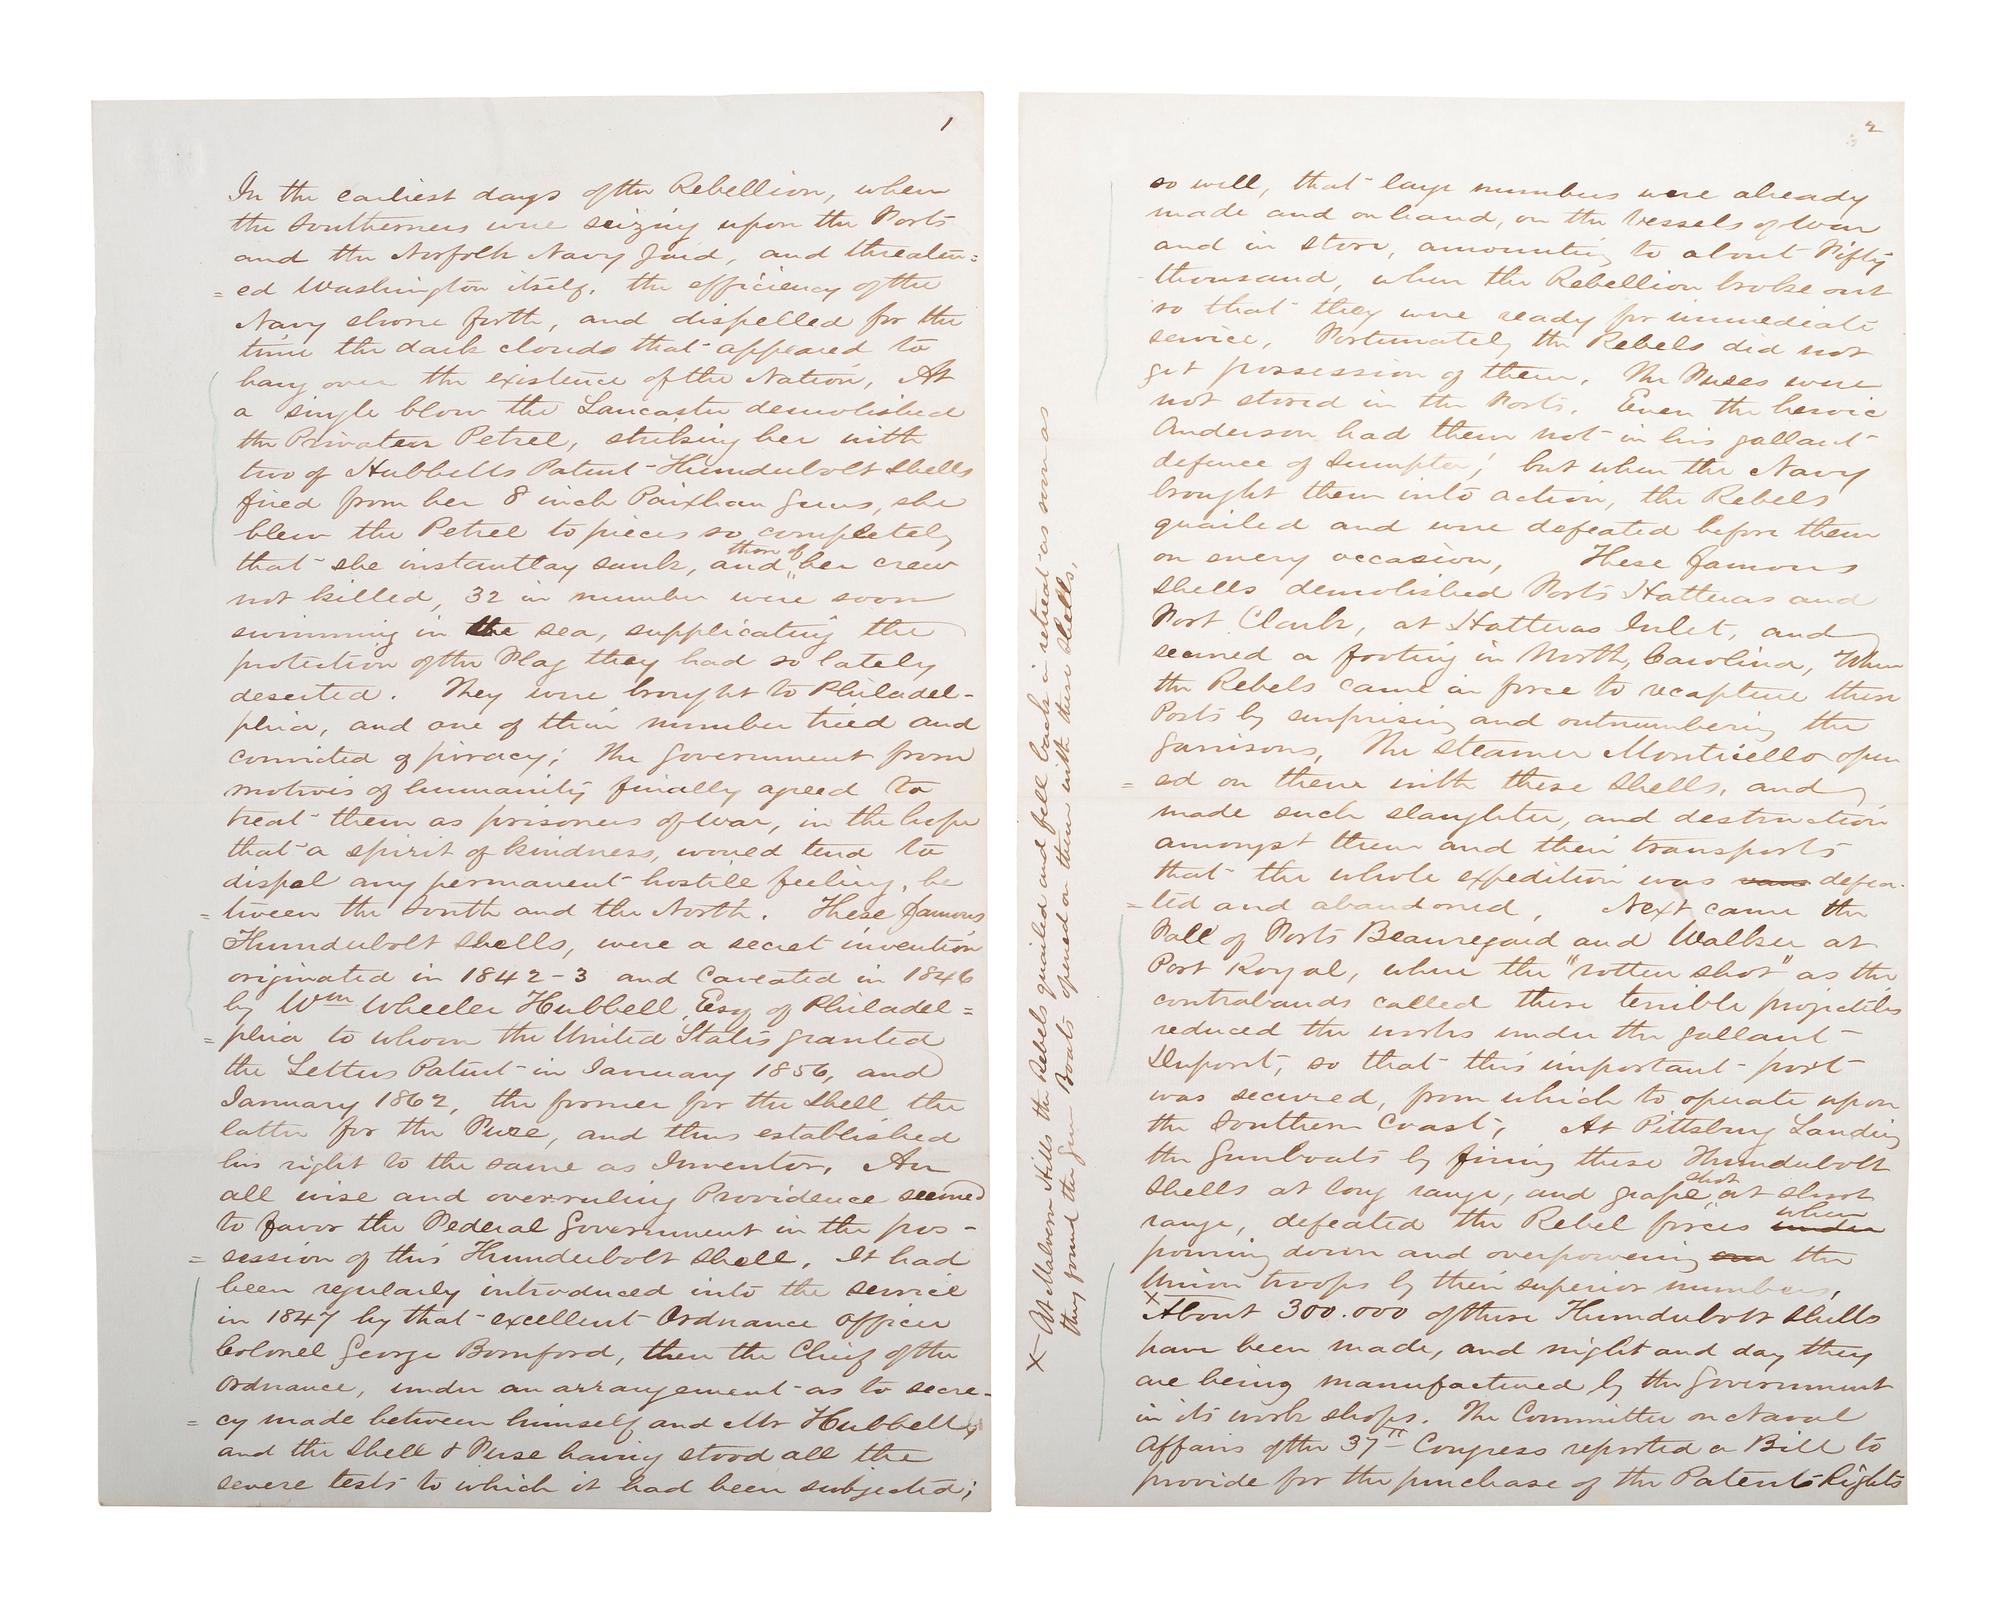 1
In the earliest days of the Rebellion, when
the Southerners were seizing upon the Forts
and the Norfolk Navy Yard, and threaten=
=ed Washington itself, the efficiency of the
Navy shone forth, and dispelled for the
time the dark clouds that appeared to
hang over the existence of the Nation, At
a single blow the Lancaster demolished
the Privateer Petrel, striking her with
two of Hubbells Patent Thunderbolt Shells
fired from her 8 inch Paixhan Guns, she
blew the Petrel to pieces so completely
that she instantly sunk, and those of her crew
not killed, 32 in number were soon
swimming in the sea, supplicating the
protection of the Flag they had so lately
deserted. They were brought to Philadel-
phia, and one of their number tried and
convicted of piracy; The Government from
motives of humanity finally agreed to
treat them as prisoners of war, in the hope
that a spirit of kindness, would tend to
dispel any permanent hostile feeling, be
=tween the South and the North. These famous
Thunderbolt Shells, were a secret invention
originated in 1842-3 and Caveated in 1846
by Wm Wheeler Hubbell, Esq of Philadel=
=phia to whom the United States granted
the Letters Patent in January 1856, and
January 1862, the former for the Shell the
latter for the Fuze, and thus established
his right to the same as Inventor. An
all wise and overruling Providence seemed
to favor the Federal Government in the pos-
=session of this Thunderbolt Shell. It had
been regularly introduced into the service
in 1847 by that excellent Ordnance officer
Colonel George Bomford, then the Chief of the
Ordnance, under an arrangement as to secre-
=cy made between himself and Mr Hubbell,
and the Shell & Fuse having stood all the
severe tests to which it had been subjected;
2
so well, that large numbers were already
made and on hand, on the Vessels of War
and in store, amounting to about Fifty
thousand, when the Rebellion broke out
so that they were ready for immediate
service. Fortunately the Rebels did not
get possession of them. The Fuzes were
not stored in the Forts. Even the heroic
Anderson had them not in his gallant
defence of Sumpter; but when the Navy
brought them into action, the Rebels
quailed and were defeated before them
on every occasion, These famous
Shells demolished Forts Hatteras and
Fort Clark, at Hatteras Inlet, and
secured a footing in North Carolina, When
the Rebels came in force to recapture these
Posts by surprising and outnumbering the
garrisons, The steamer Monticello open
=ed on them with these Shells, and
made such slaughter, and destruction
amongst them and their transports
that the whole expedition was defea-
=ted and abandoned, Next came the
Fall of Forts Beauregard and Walker at
Port Royal, where the "rotten shot" as the
contrabands called these terrible projectiles
reduced the works under the gallant
Dupont, so that this important port
was secured, from which to operate upon
the Southern Coast; At Pittsburg Landing
the Gunboats by firing these Thunderbolt
Shells at long range, and grape shot at short
range, defeated the Rebel forces under when
pouring down and overpowering the
Union troops by their superior numbers.
x About 300.000 of these Thunderbolt Shells
have been made, and night and day they
are being manufactured by the Government
in its work shops. The Committee on Naval
Affairs of the 37th Congress reported a Bill to
provide for the purchase of the Patent Rights
x At Malvern Hills the Rebels quailed and fell back in retreat as soon as
they found the Gun Boats opened on them with these Shells.